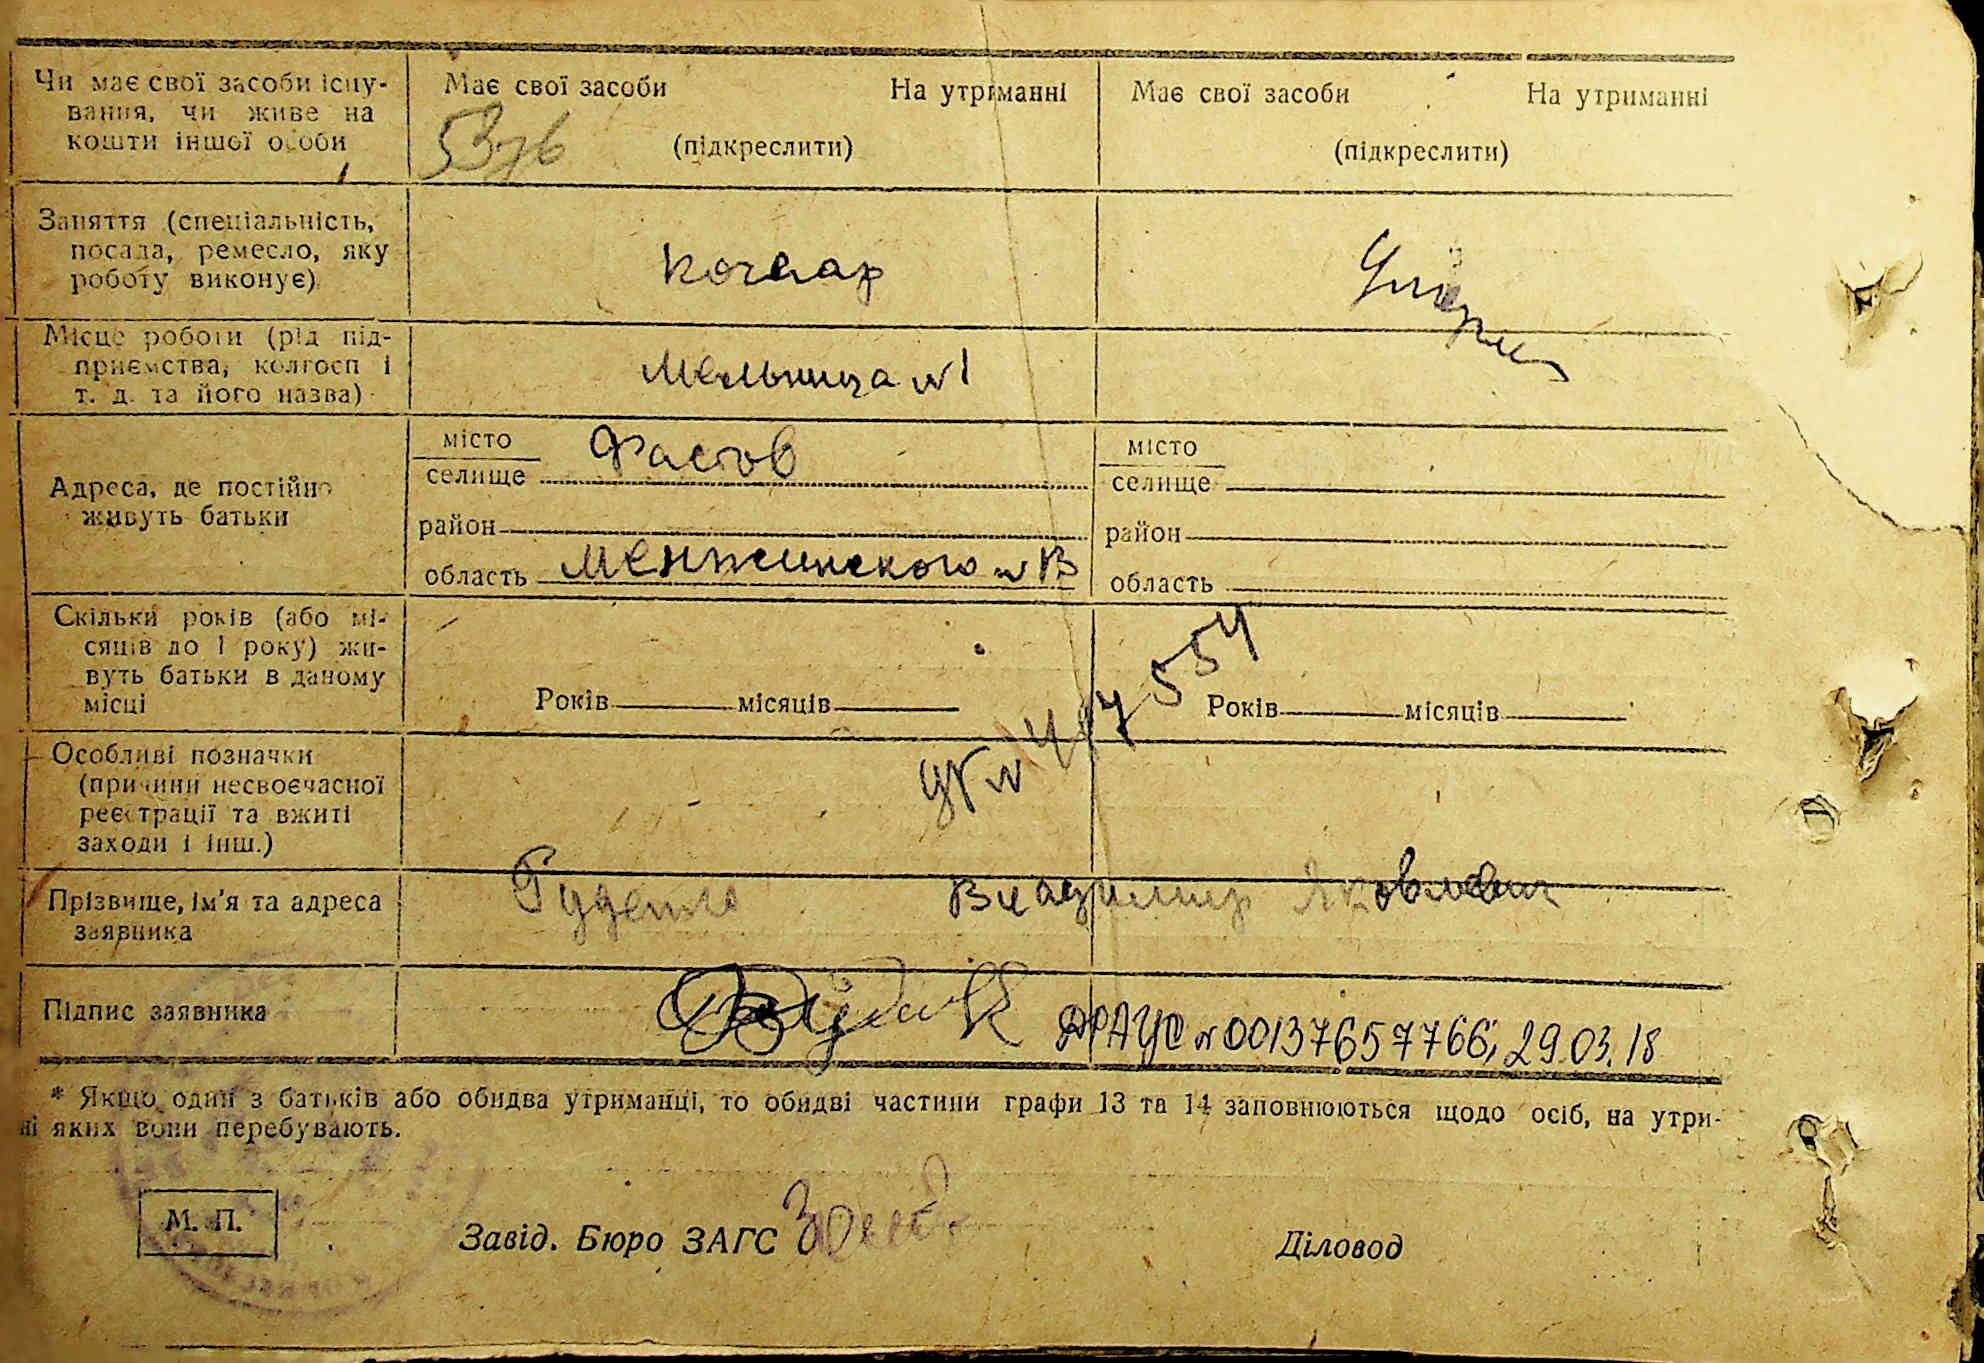 Чи має свої засоби існу-
вання, чи живе на
кошти іншої особи
Має свої засоби На утриманні
(підкреслити)
5376
Має свої засоби На утриманні
(підкреслити)
Заняття (спеціальність,
посада, ремесло, яку
роботу виконує)
кочегар
Місце роботи (рід під-
приємства, колгосп і
т. д. та його назва)
мельница №1
Адреса, де постійно
живуть батьки
місто
селище Фастов
район
область Менжинского № 13
місто
селище
район
область
Скільки років (або мі-
сяців до 1 року) жи-
вуть батьки в даному
місці
Років місяців
Років місяців
Особливі позначки
(причини несвоєчасної
реєстрації та вжиті
заходи і інш.)
Прізвище, ім'я та адреса
заявника
Владимир Яковлевич
Підпис заявника
ДРАЦС № 00137657766; 29.03.18
* Якщо один з батьків або обидва утриманці, то обидві частини графи 13 та 14 заповнюються щодо осіб, на утри-
ні яких вони перебувають.
М. П.
Завід. Бюро ЗАГС
Діловод